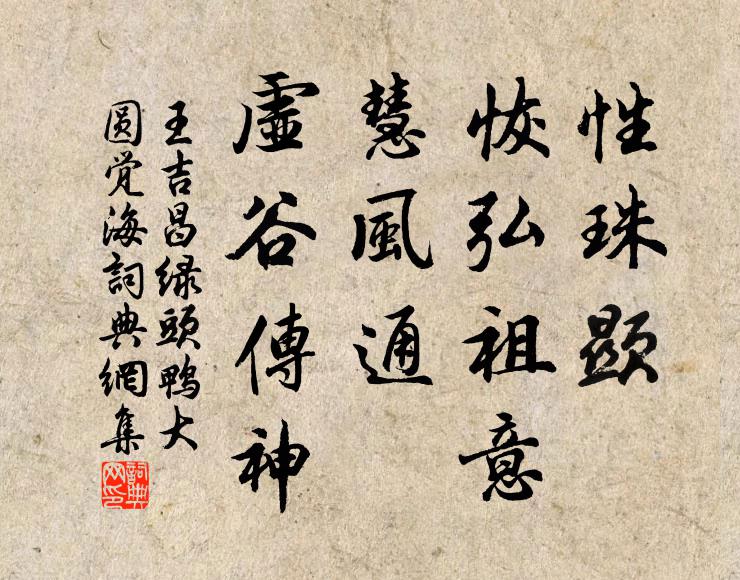 性珠顯
恢弘祖意
慧風通
虛谷傳神
王吉昌绿頭鴨大
圆觉海詞典網集
詞典网印